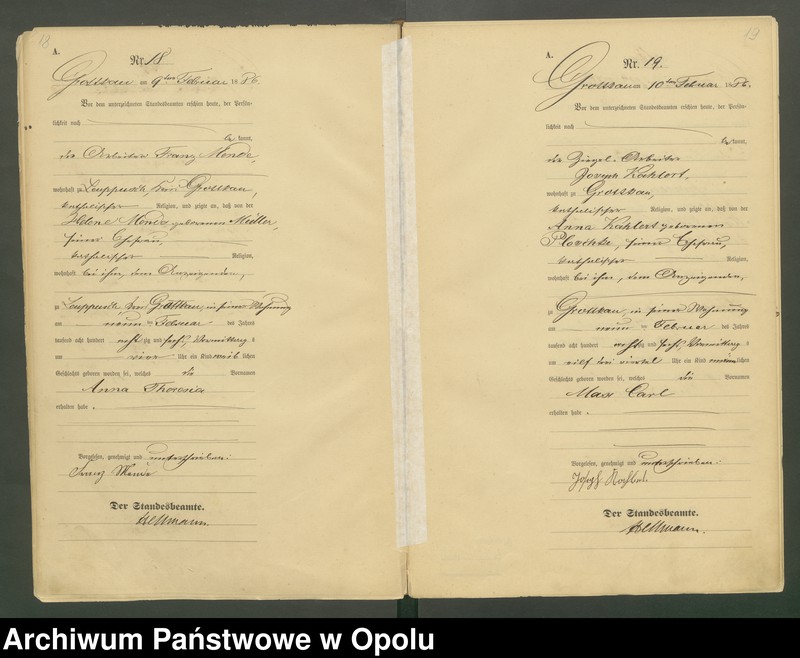 18
A.
Nr. 18.
Grottkau am 9ten Februar 1886.
Vor dem unterzeichneten Standesbeamten erschien heute, der Persön-
lichkeit nach
bekannt,
der Arbeiter Franz Mende,
wohnhaft zu Leuppusch, Kreis Grottkau,
katholischer Religion, und zeigte an, daß von der
Helene Mende geborenen Müller,
seiner Ehefrau,
katholischer Religion,
wohnhaft bei ihm, dem Anzeigenden,
zu Leuppusch, Kreis Grottkau, in seiner Wohnung
am neun ten Februar des Jahres
tausend acht hundert achtzig und sechs, Vormittags
um vier Uhr ein Kind weiblichen
Geschlechts geboren worden sei, welches die Vornamen
Anna Theresia
erhalten habe.
Vorgelesen, genehmigt und unterschrieben:
Franz Mende
Der Standesbeamte.
Hellmann.
19
A.
Nr. 19.
Grottkau am 10ten Februar 1886.
Vor dem unterzeichneten Standesbeamten erschien heute, der Persön-
lichkeit nach
bekannt,
der Ziegel-Arbeiter
Joseph Kahlert,
wohnhaft zu Grottkau,
katholischer Religion, und zeigte an, daß von der
Anna Kahlert geborenen
seiner Ehefrau,
katholischer Religion,
wohnhaft bei ihm, dem Anzeigenden,
zu Grottkau, in seiner Wohnung
am neun ten Februar des Jahres
tausend acht hundert achtzig und sechs, Vormittags
um elf drei viertel Uhr ein Kind männlichen
Geschlechts geboren worden sei, welches die Vornamen
Max Carl
erhalten habe.
Vorgelesen, genehmigt und unterschrieben:
Joseph
Der Standesbeamte.
Hellmann.
Archiwum Państwowe w Opolu